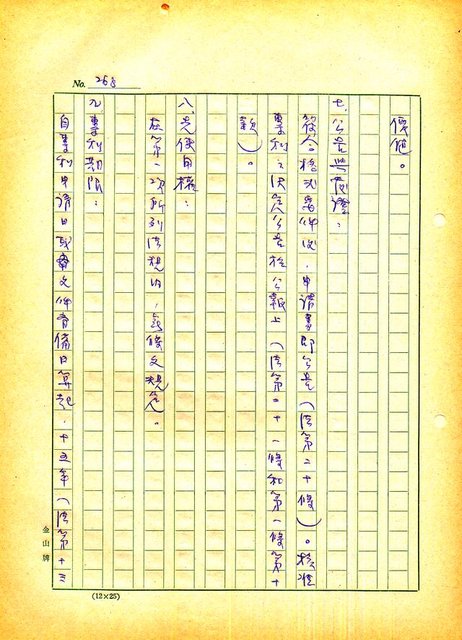 No. 268
優便。
七、公告與審證：
符合格式要件後，申請書即公告（法第二十條）。核准
專利之決定公告於公報上（法第二十一條和第一條第十
款）。
八、先使用權：
在第一項所列法規內，無條文規定。
九、專利期限：
自專利申請日或需文件齊備日算起，十五年（法第十三
金山牌
(12×25)